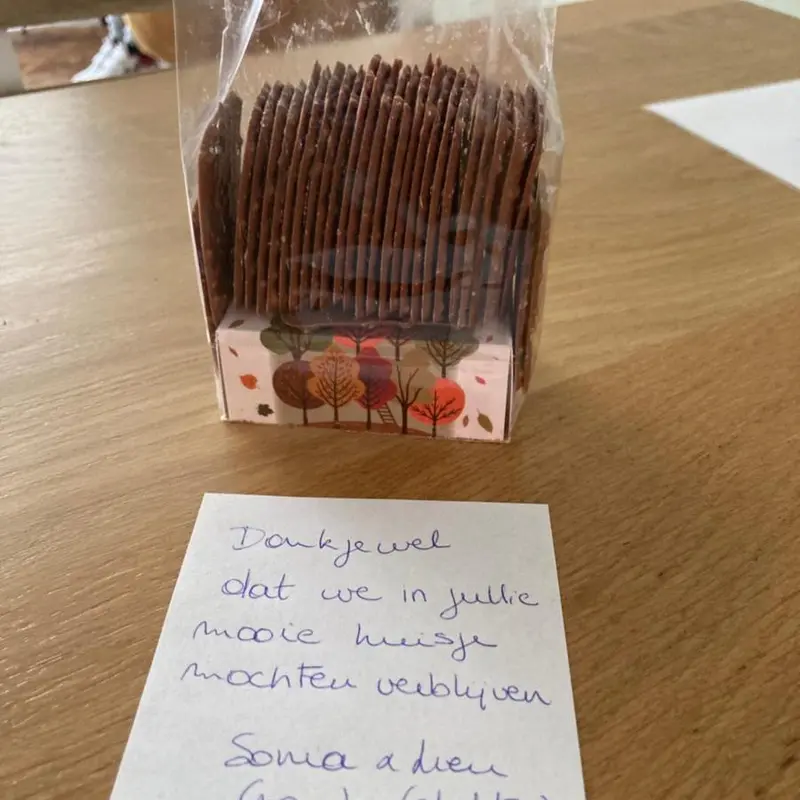 Dankjewel
dat we in jullie
mooie huisje
mochten verblijven
Sonia